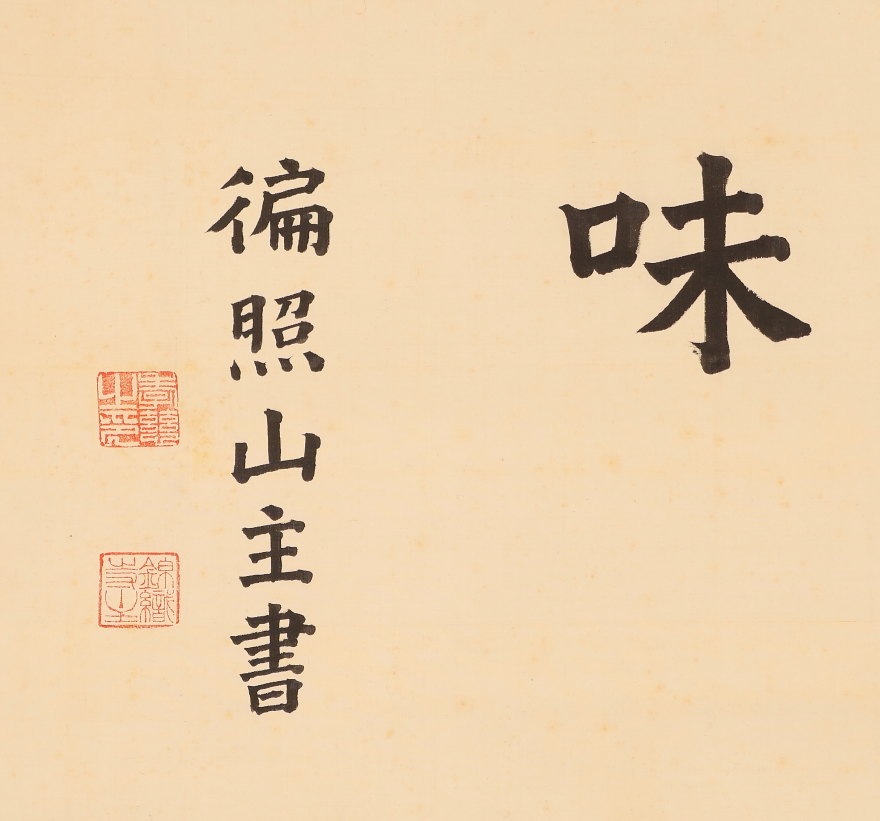 味
徧照山主書